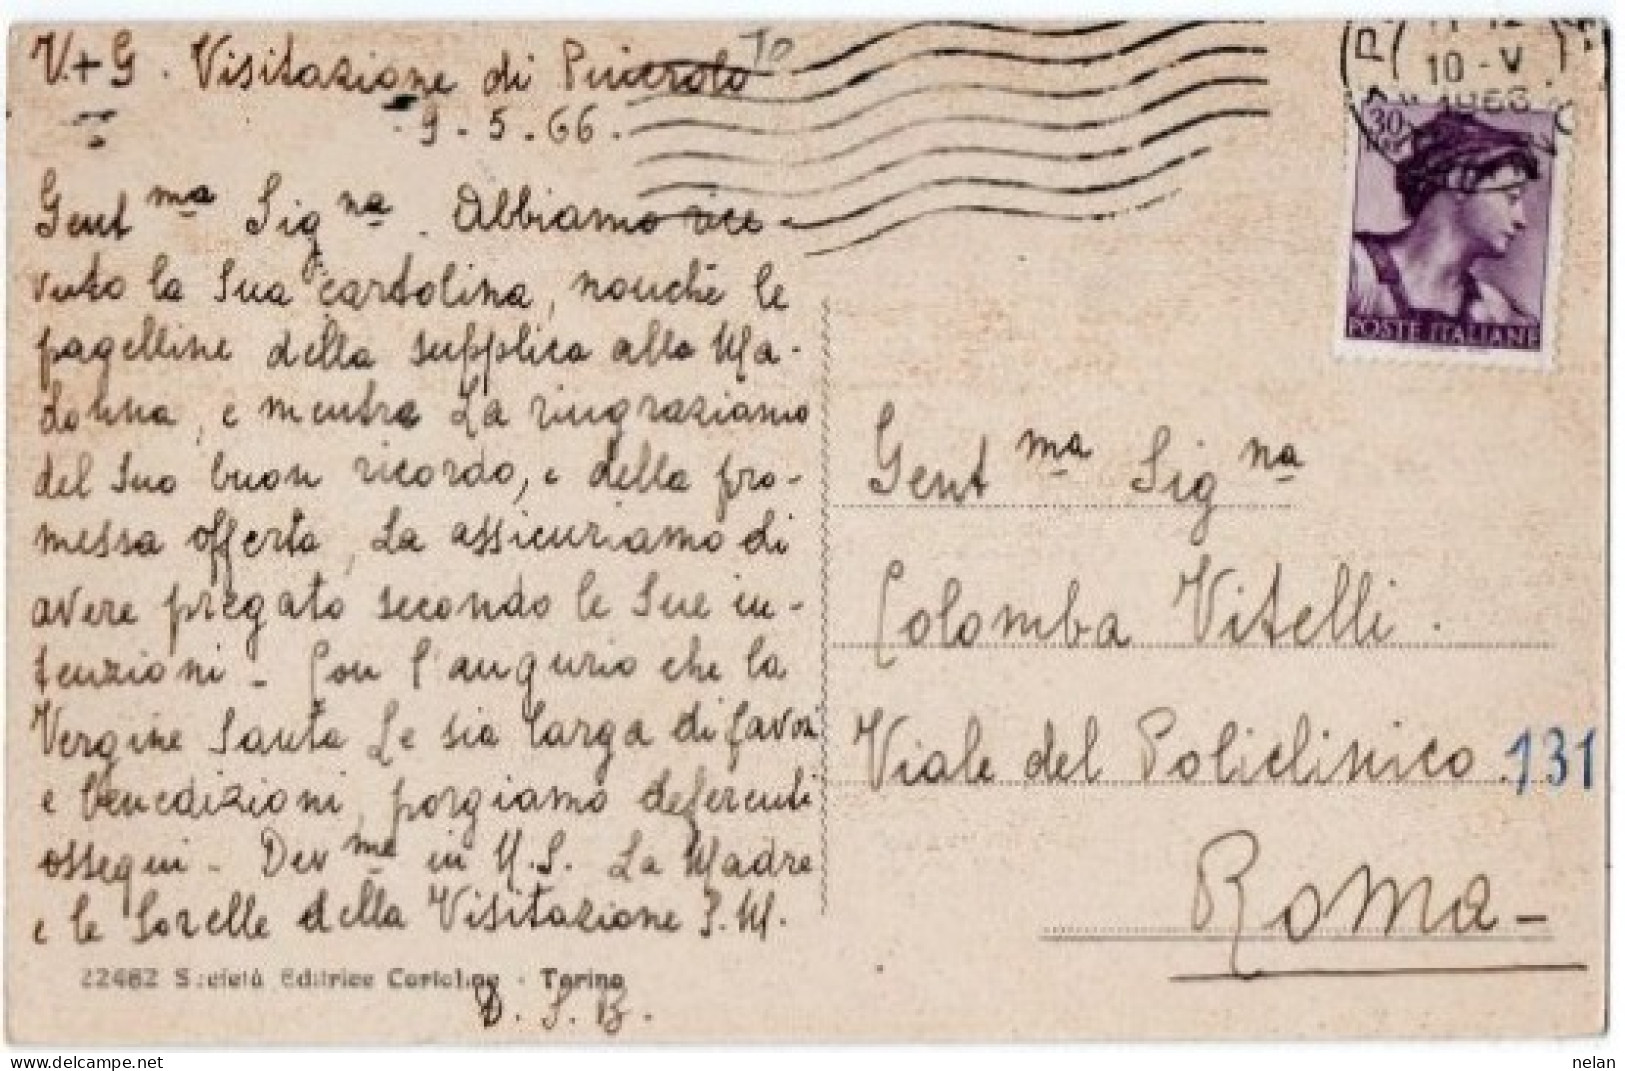 V.+G. Visitazione di Pinerolo TO
9-5-66.
Gent ma Sig na. Abbiamo rice
vuto la Sua cartolina, nonché le
pagelline della supplica alla Ma-
donna, e mentre La ringraziamo
del Suo buon ricordo, e della pro-
messa offerta, La assicuriamo di
avere pregato secondo le Sue in-
tenzioni - Con l'augurio che la
Vergine Santa Le sia larga di favori
e benedizioni, porgiamo deferenti
ossequi - Dev me in N.S. La Madre
e le Sorelle della Visitazione S.M.
D.S.B.
22462 Società Editrice Cartoline - Torino
10-V
1966
30
LIRE
POSTE ITALIANE
Gent ma Sig na
Colomba Vitelli.
Viale del Policlinico 131
Roma-
nelan